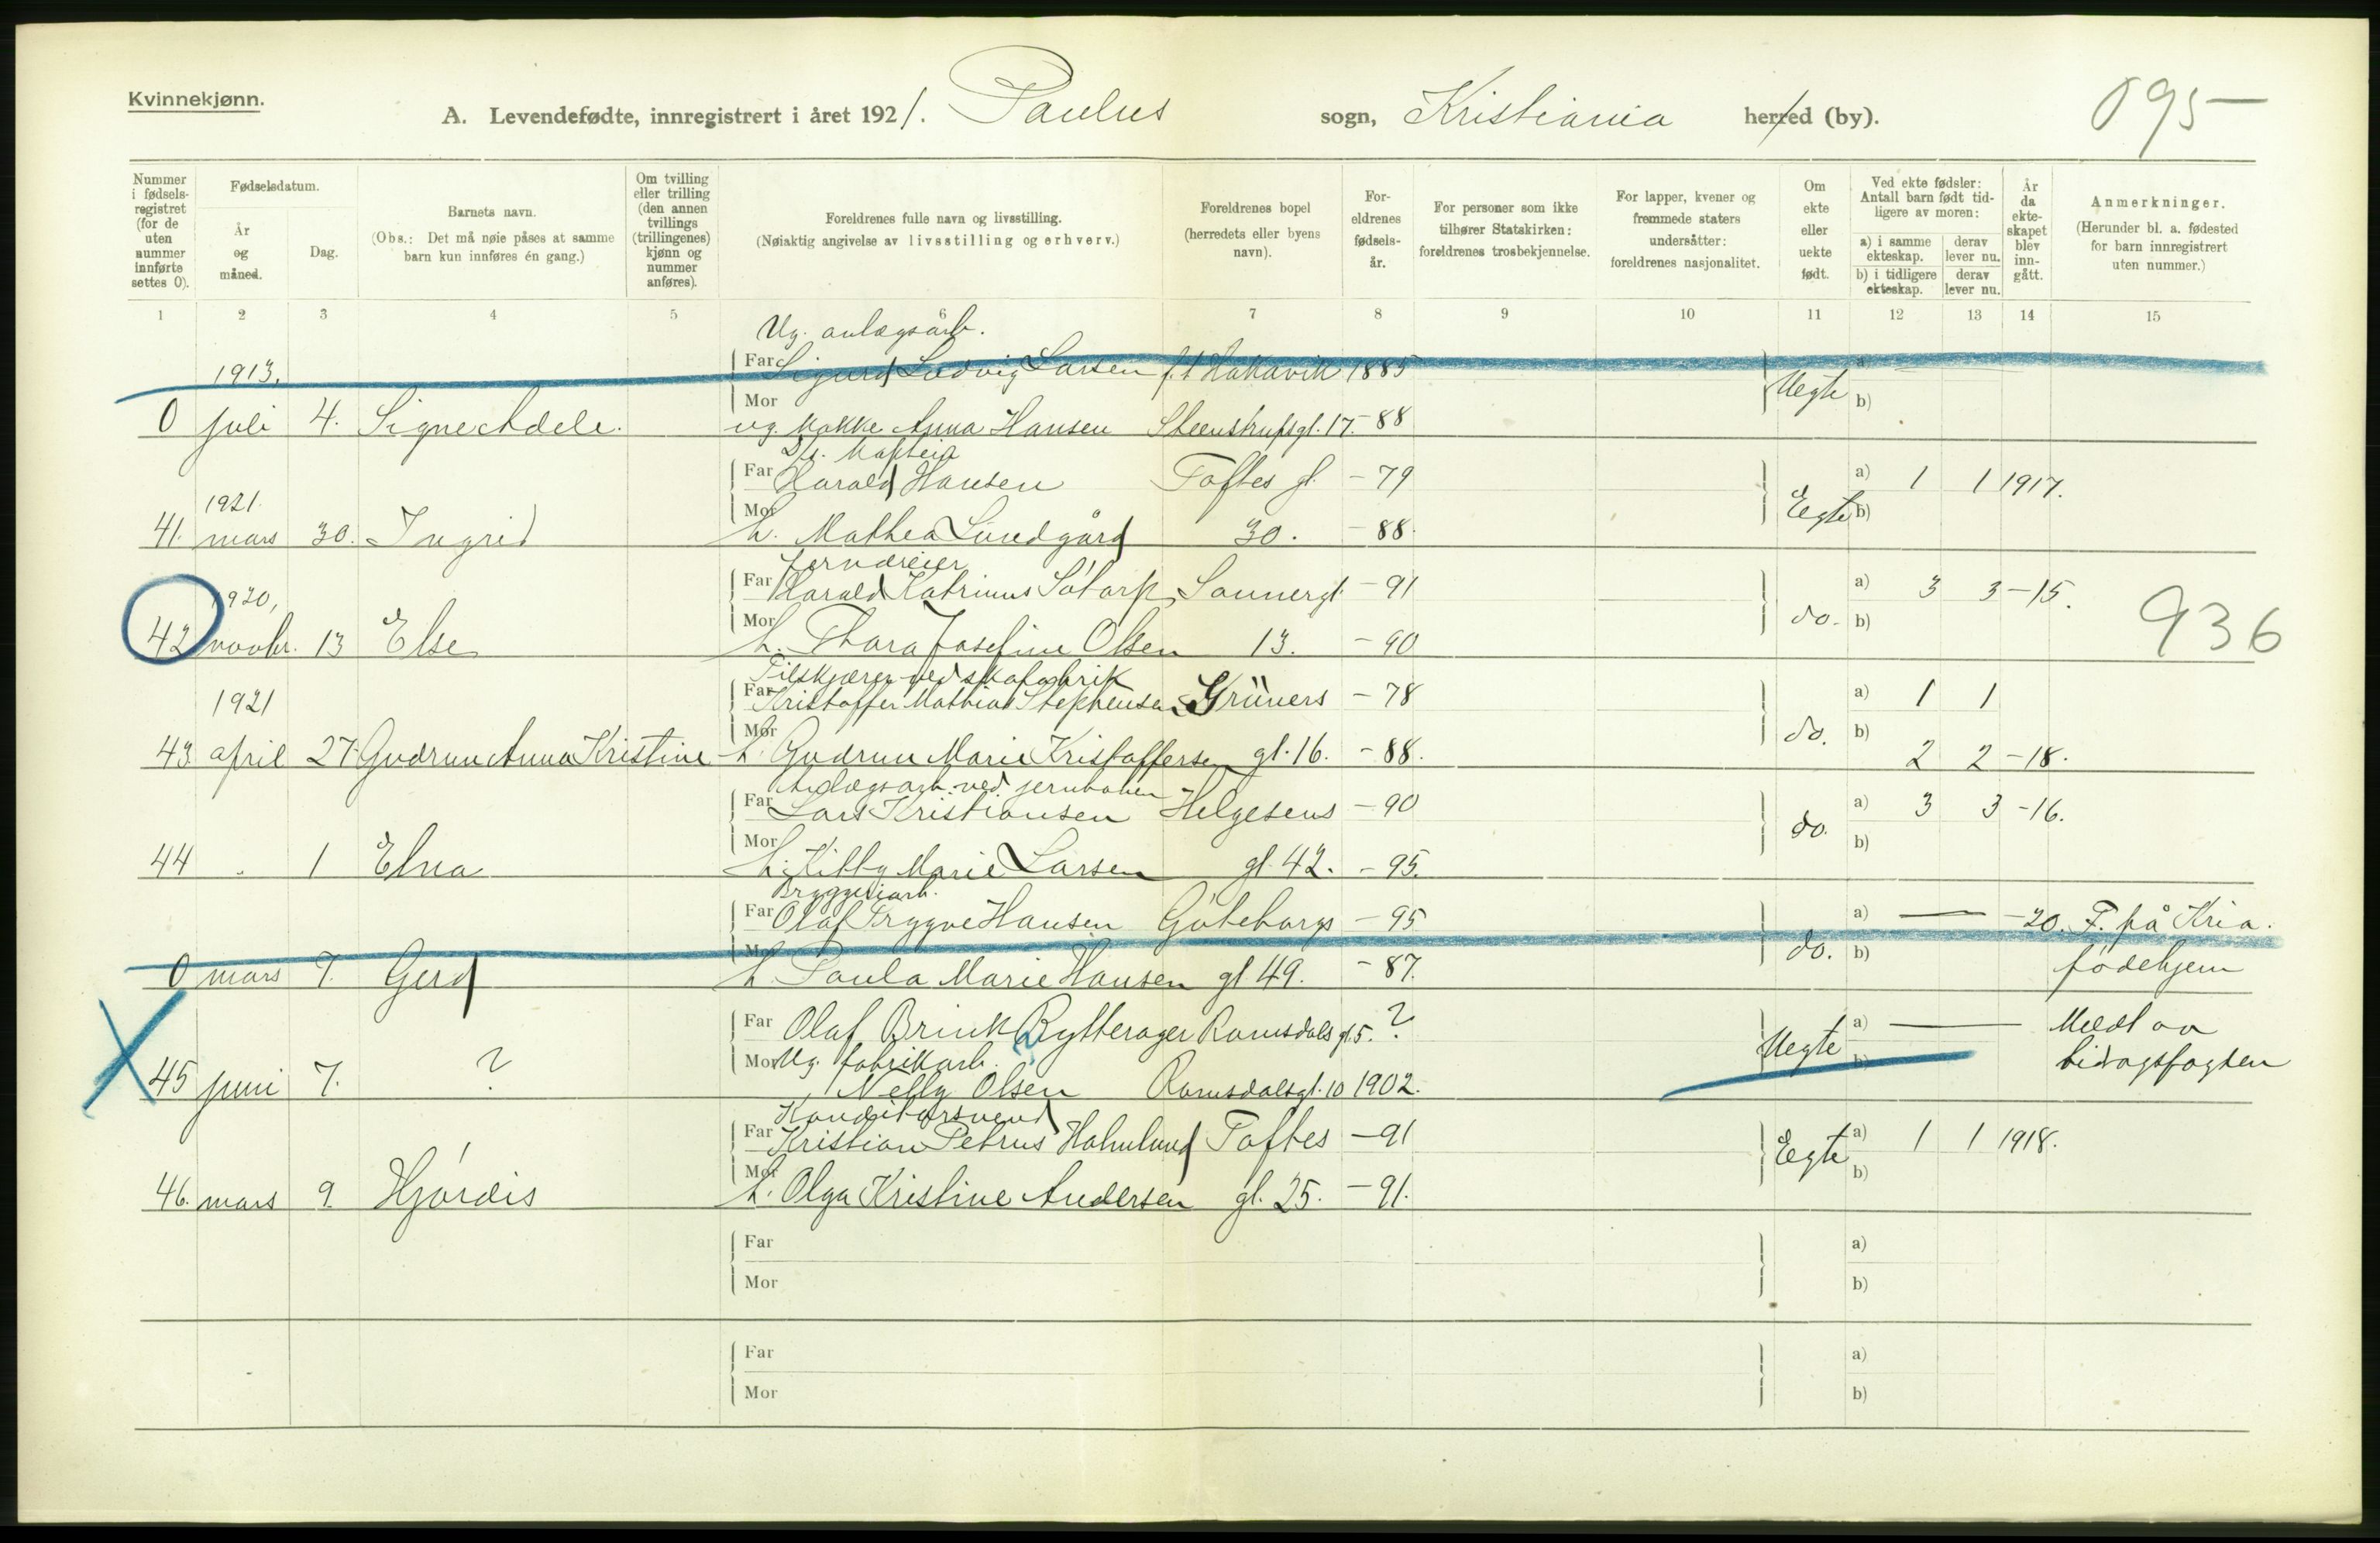 Kvinnekjønn.
A. Levendefødte, innregistrert i året 1921. Paulus sogn, Kristiania herred (by).
095
Nummer i fødsels-registret (for de uten nummer innførte settes 0).
Fødselsdatum.
År og måned.
Dag.
Barnets navn.
(Obs.: Det må nøie påses at samme barn kun innføres én gang.)
Om tvilling eller trilling (den annen tvillings (trillingenes) kjønn og nummer anføres).
Foreldrenes fulle navn og livsstilling.
(Nøiaktig angivelse av livsstilling og erhverv.)
Foreldrenes bopel (herredets eller byens navn).
For-eldrenes fødsels-år.
For personer som ikke tilhører Statskirken: foreldrenes trosbekjennelse.
For lapper, kvener og fremmede staters undersåtter: foreldrenes nasjonalitet.
Om ekte eller uekte født.
Ved ekte fødsler: Antall barn født tid-ligere av moren:
a) i samme ekteskap.
derav lever nu.
b) i tidligere ekteskap.
derav lever nu.
År da ekte-skapet blev inn-gått.
Anmerkninger.
(Herunder bl. a. fødested for barn innregistrert uten nummer.)
1 2 3 4 5 6 7 8 9 10 11 12 13 14 15
Ug. anlægsarb.
1913. Far Sigurd Ludvig Larsen f.t Hakavik 1885 a)
Mor Uegte b)
0 juli 4. Signe Adele. ug. kokke Anna Hansen Steenstrupsgt. 17. - 88
Far Harald Hansen Toftes gt. - 79 a) 1 1 1917.
1921. Mor Egte b)
41. mars 30. Ingrid h. Mathea Lundgård 30. - 88.
Jerndreier
Far Harald Katrinus Sötorp, Sannergt. - 91 a) 3 3 - 15.
1920, Mor do. b) 936
42 novbr. 13 Else h. Thora Josefine Olsen 13. - 90
Tilskjærer ved skofabrik
Far Kristoffer Mathias Stephensen Grüners - 78 a) 1 1
1921 Mor do. b)
43. april 27. Gudrun Anna Kristine h. Gudrun Marie Kristoffersen gt. 16. - 88. 2 2 - 18.
Anlægsarb. ved jernbanen
Far Lars Kristiansen Helgesens - 90 a) 3 3 - 16.
Mor do. b)
44 " 1 Elna h. Marie Larsen gt. 42. - 95.
Bryggeriarb.
Far Olaf Trygve Hansen Göteborgs - 95 a) — - 20. F. på Kria.
Mor do. b)
0 mars 7. Gerd h. Paula Marie Hansen gt. 49. - 87. födehjem
Far Olaf Brink Rytterager Romsdals gt. 5. ? a) — Meldt av
Mor Ug. fabrikarb. Uegte b) bidragsfogden
45 juni 7. ? Nelly Olsen Romsdalsgt. 10 1902.
Konditorsvend
Far Kristian Petrus Holmlund Toftes - 91 a) 1 1 1918.
Mor Egte b)
46. mars 9. Hjördis h. Olga Kristine Andersen gt. 25. - 91.
Far a)
Mor b)
Far a)
Mor b)